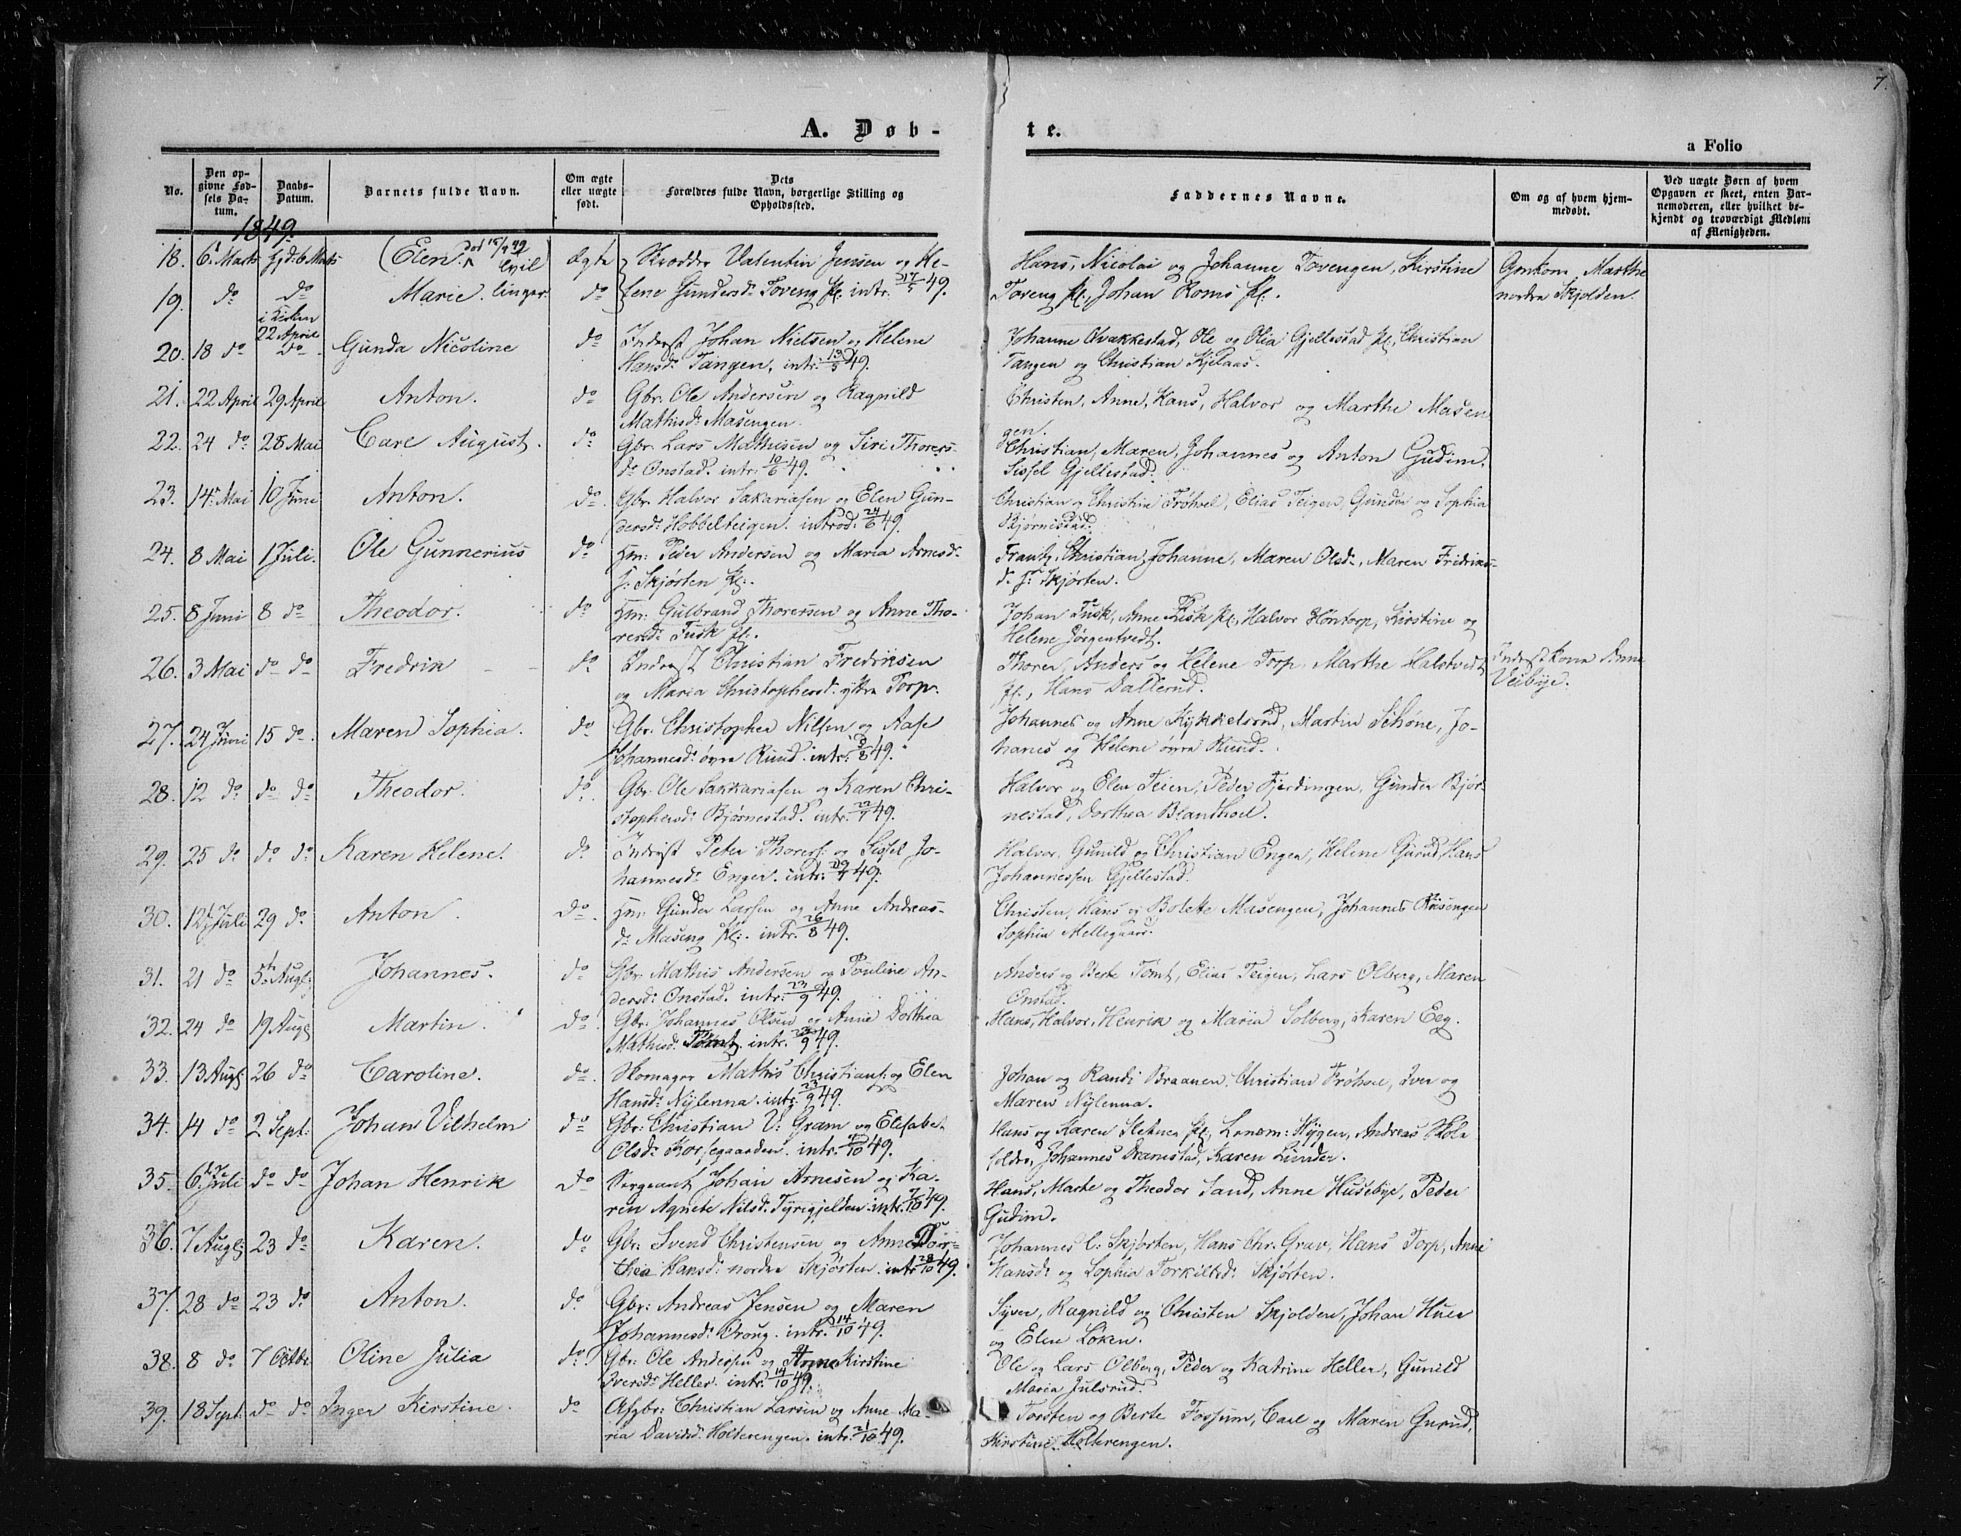 7.
A. Døb-
te.
a Folio
No.
Den op-
givne Fød-
sels Da-
tum.
Daabs-
Datum.
Barnets fulde Navn.
Om ægte
eller uægte
født.
Dets
Forældres fulde Navn, borgerlige Stilling og
Opholdssted.
Faddernes Navne.
Om og af hvem hjem-
medøbt.
Ved uægte Børn af hvem
Opgaven er skeet, enten Bar-
nemoderen, eller hvilket be-
kjendt og troværdigt Medlem
af Menigheden.
1849.
18. 6 Marts Hjd. 6 Marts Elen. Ægte Skrædder Valentin Jensen og He-
lene Gundersd. Toveng pl. intr. 17/5 49.
Hans, Nicolai og Johanne Tovengen, Kirstine
Toveng pl., Johan Roms pl.
Marthe
nordre Skjolden.
19. do do Marie. do
i Kirken
22 April
20. 18 do do Gunda Nicoline do Inderst Johan Nielsen og Helene
Hansd. Tangen, intr. 13/5 49.
Johanne Ovakkestad, Ole og Olia Gjellestad pl., Christian
Tangen og Christian Kjelaas.
21. 22 April 29 April Anton. do Gbr. Ole Andersen og Ragnild
Mathisd. Masengen.
Christen, Anne, Hans, Halvor og Marthe Masen
gen.
22. 24 do 28 Mai Carl August. do Gbr. Lars Mathisen og Siri Thorers-
d. Onstad. intr. 10/6 49.
Christian, Maren, Johannes og Anton Gudim.
Sissel Gjellestad.
23. 14 Mai 10 Juni Anton. do Gbr. Halvor Sakariasen og Elen Gun-
dersd. Hobbelteigen. introd. 24/6 49.
Christian og Christia Frøhoel, Elias Teigen, Gunder og Sophia
Bjørnestad.
24. 8 Mai 1 Juli. Ole Gunnerius do Hm. Peder Andersen og Maria Arnesd.
Skjørten pl.
Frantz, Christian, Johanne, Maren Olsd., Maren Fredriks-
d. Skjørten.
25. 8 Juni 8 do Theodor. do Hm. Gulbrand Thoresen og Anne Tho-
rersd. Tusk pl.
Johan Tusk, Anne Tusk pl. Halvor Hontorp, Kirstine og
Helene Sørgentvedt.
26. 3 Mai do do Fredrik do Inderst Christian Fredriksen
og Maria Christophersd. yttre Torp.
Thorer, Anders og Helene Torp, Marthe Halstvedt
pl., Hans Dallerud.
Inderstkone Anne
Veibye.
27. 24 Juni 15 do. Maren Sophia. do Gbr. Christopher Nilsen og Aase
Johannesd. øvre Ruud. intr. 49.
Johannes og Anne Kykkelsrud, Martin Schøne, Jo-
hanes og Helene øvre Ruud.
28. 12 do do do Theodor. do. Gbr. Ole Sakkariasen og Karen Chri-
stophersd. Bjørnestad. intr. 22/7 49.
Halvor og Elen Teien, Peder Fjerdingen, Gunder Bjør-
nestad, Dorthea Braathoel.
29. 25 do do do Karen Helene. do. Inderst Peter Thorers. og Sissel Jo-
hannesd. Enger. intr. 29/7 49.
Halvor, Gunild og Christian Engen, Helene Gurud, Hans
Johannessen Gjellestad.
30. 12 Juli 29 do Anton. do. Hm. Gunder Larsen og Anne Andreas-
d. Maseng pl. intr. 26/8 49.
Christen, Hans og Bolette Masengen, Johannes Risengen
Sophia Mellegaard.
31. 21 do 5te Aug. Johannes. do Gbr. Mathis Andersen og Pouline An-
dersd. Onstad. intr. 23/9 49.
Anders og Berte Tomt, Elias Teigen, Lars Olberg, Maren
Onstad.
32. 24 do 19 Aug. Martin. do. Gbr. Johannes Olsen og Anne Dorthea
Mathisd. Tomt. intr. 23/9 49.
Hans, Halvor, Henrik og Maria Solberg, Karen Eeg.
33. 13 Aug. 26 do Caroline. do. Skomager Mathis Christians. og Elen
Hansd. Nylenna. intr. 23/9 49.
Johan og Randi Braanen, Christian Frøhoel, Iver og
Maren Nylenna.
34. 14 do 2 Sept. Johan Vilhelm do Gbr. Christian V. Gram og Elisabe.
Olsd. Korsegaarden. intr. 49.
Hans og Karen Sletner pl., Lensm. Hygen, Andreas Skole
foldr., Johannes Dramstad, Karen Lunder.
35. 6 Juli do do Johan Henrik do Sergeant Johan Arnesen og Ka-
ren Agnete Nilsd. Tyrigjelden. intr. 7/10 49.
Hans, Marte og Theodor Sand, Anne Husebye, Peder
Gudim.
36. 7 Aug. 23 do Karen. do Gbr. Svend Christensen og Anne Dor-
thea Hansd. nordre Skjørten. intr. 28/10 49.
Johannes C. Skjørten, Hans Chr. Grav, Hans Torp, Anne
Hansd. og Sophia Torkilsd. Skjørten.
37. 28 do 23 do. Anton. do Gbr. Andreas Jensen og Maren
Johannesd. Croug. intr. 14/10 49.
Syver, Ragnild og Christen Skjolden, Johan Huer
og Elen Løken.
38. 8 do 7 Octbr. Oline Julia do. Gbr. Ole Andersen og Anne Kirstine
Iversd. Heller. intr. 14/10 49.
Ole og Lars Olberg, Peder og Katrine Heller, Gunild
Maria Julsrud.
39. 18 Sept. do do Inger Kirstine. do Afgbr. Christian Larsen og Anne Ma-
ria Davidsd. Holterengen. intr. 21/10 49.
Torsten og Berte Fossum, Carl og Maren Gurud,
Kirstine Holterengen.